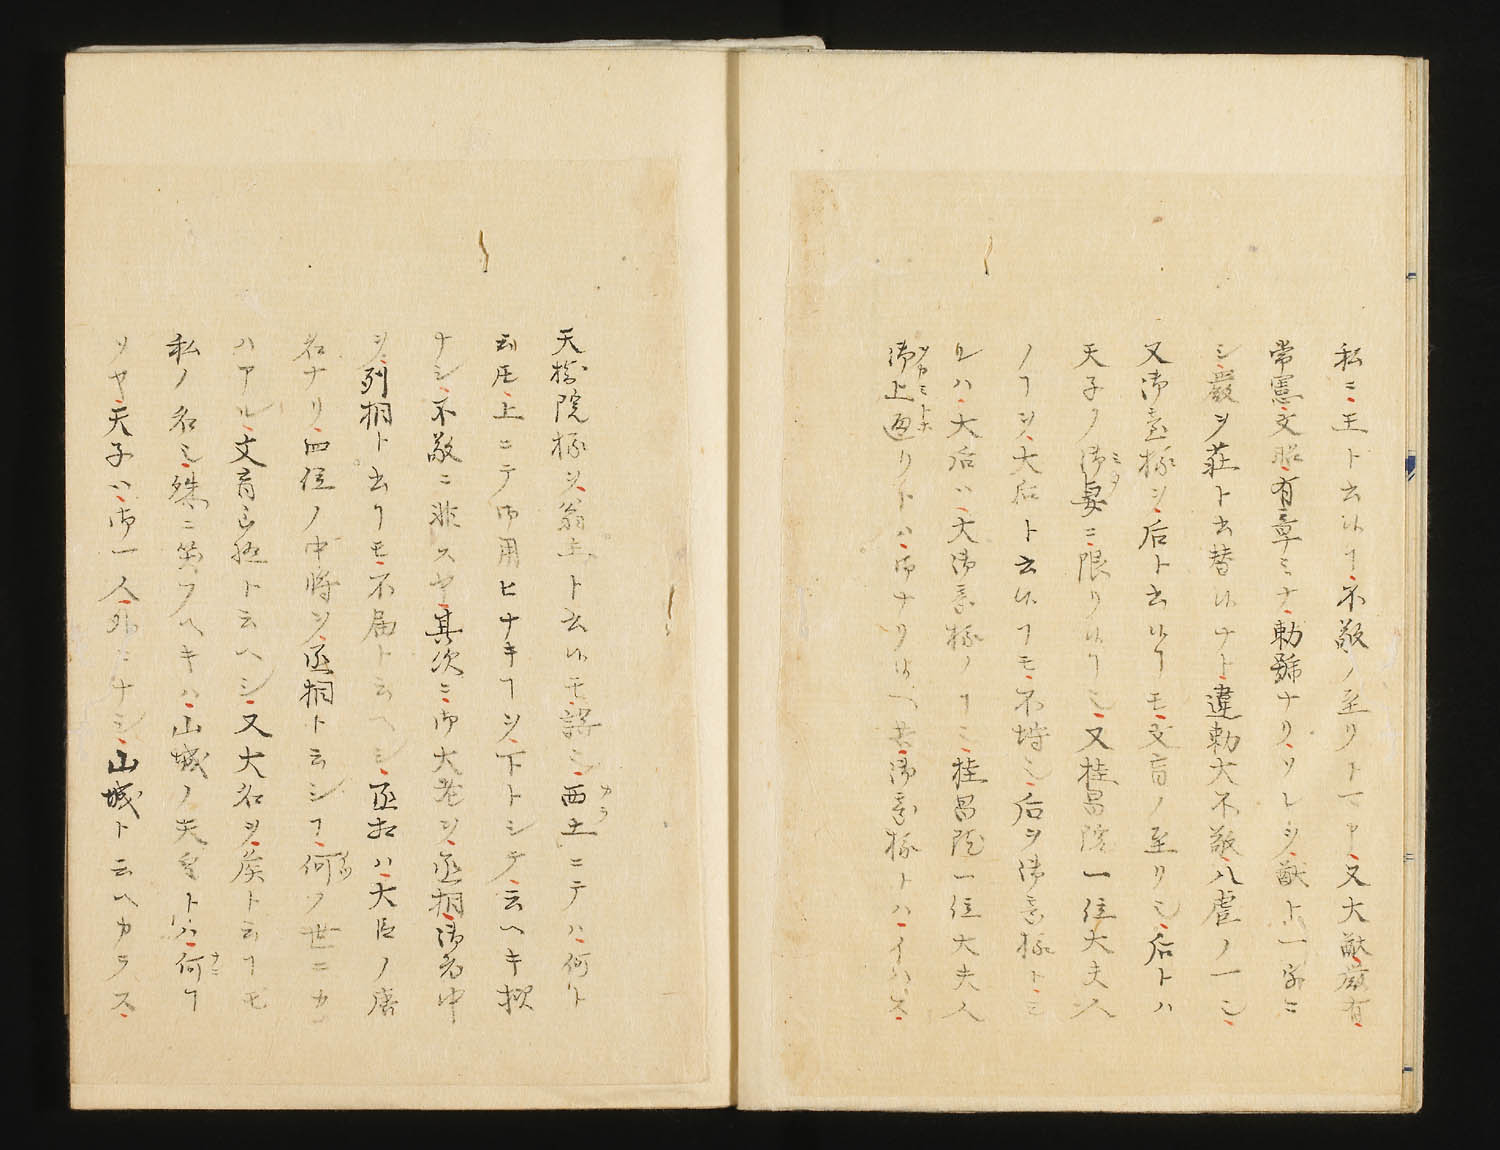 私ニ王ト云ハ不敬ノ至リト又大猷厳有
常憲文昭有章ミナ勅號ナリソレヲ猷ト一字ニ
シ厳ヲ荘ト云替ナト違勅大不敬八虐ノ一也
又御臺様ヲ后ト云モ文盲ノ至リ也后トハ
天子ノ御妻ニ限リ也又桂昌院一位大夫人
ノヿヲ大后ト云ヿモ不埒也后ヲ御臺様トミ
ルハ大后ハ大御臺様ノヿミ桂昌院一位大夫人
御上通リトハ御ナリ共御臺様トハイハス
天樹院様ヲ翁主ト云モ誤也西土ニテハ何ト
上ニテ御用ヒナキヿヲ下トシテ云ヘキ
ナシ不敬ニ非スヤ其次ニ御大老ヲ丞相御老中
ヲ列相ト云ヿモ不届ト云ヘシ丞相ハ大臣ノ唐
名ナリ四位ノ中将ヲ丞相ト云シヿ何ノ世ニカ
ハアル文盲ト云ヘシ又大名ヲ侯ト云ヿモ
私ノ名ミ殊ニ笑フヘキハ山城ノ天皇トハ何ヿ
ソヤ天子ハ御一人外ニナシ山城ト云ヘカラス